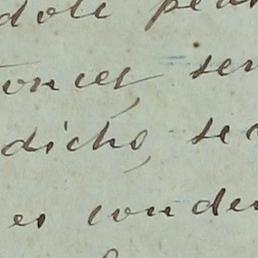 dole
onces, ser
dicho, se
es conde